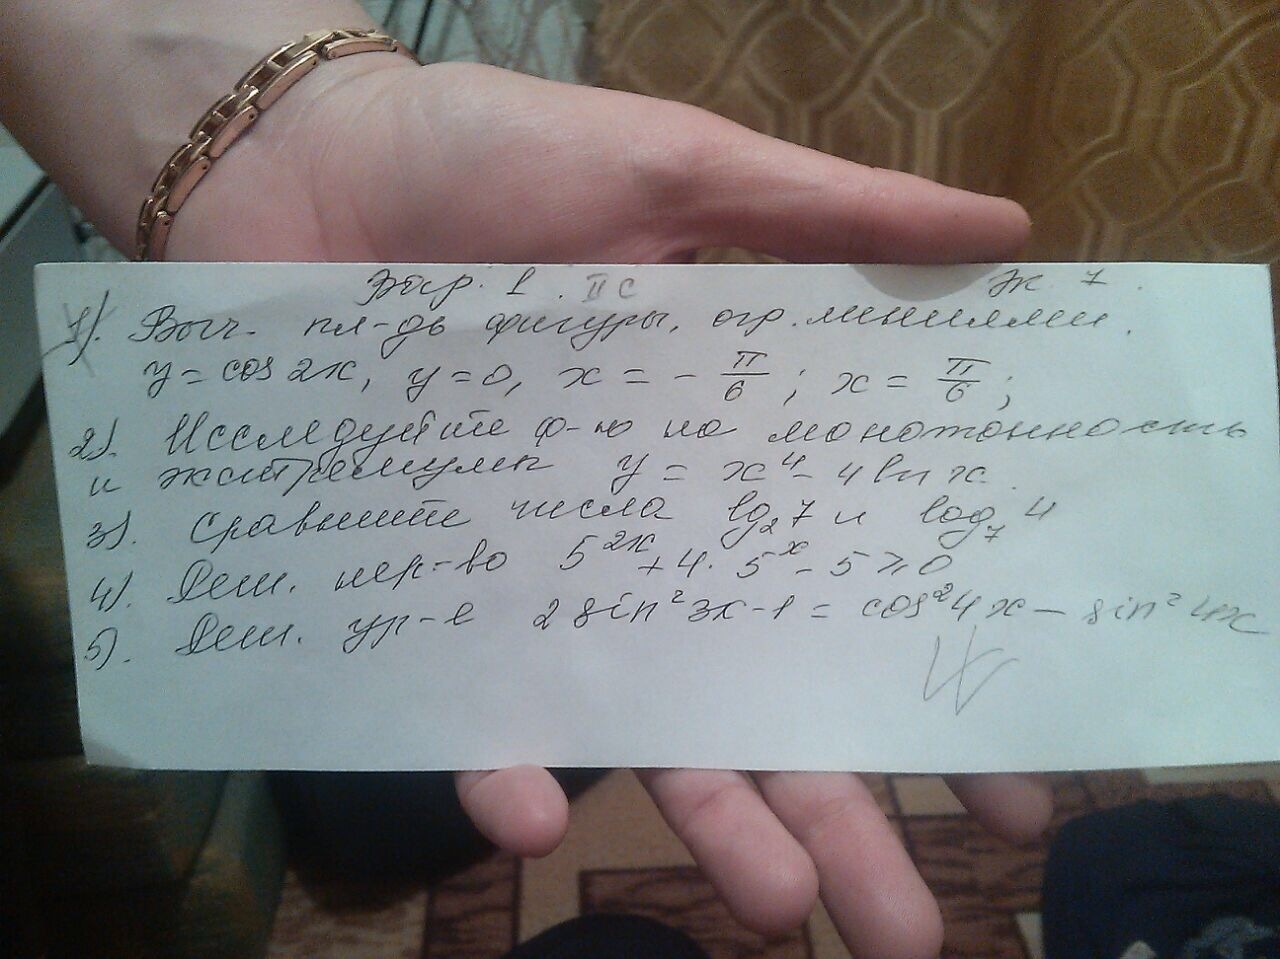 Вар. 1. II С Эк. 7.
1). Выч. пл-дь фигуры, огр. линиями.
y = cos 2x, y = 0, x = - π/6 ; x = π/6 ;
2). Исследуйте ф-ю на монотонность
и экстремумы y = x⁴ - 4 ln x.
3). Сравните числа log₂ 7 и log₇ 4
4). Реш. нер-во 5²ˣ + 4 · 5ˣ - 5 ⩾ 0
5). Реш. ур-е 2 sin² 3x - 1 = cos² 4x - sin² 4x